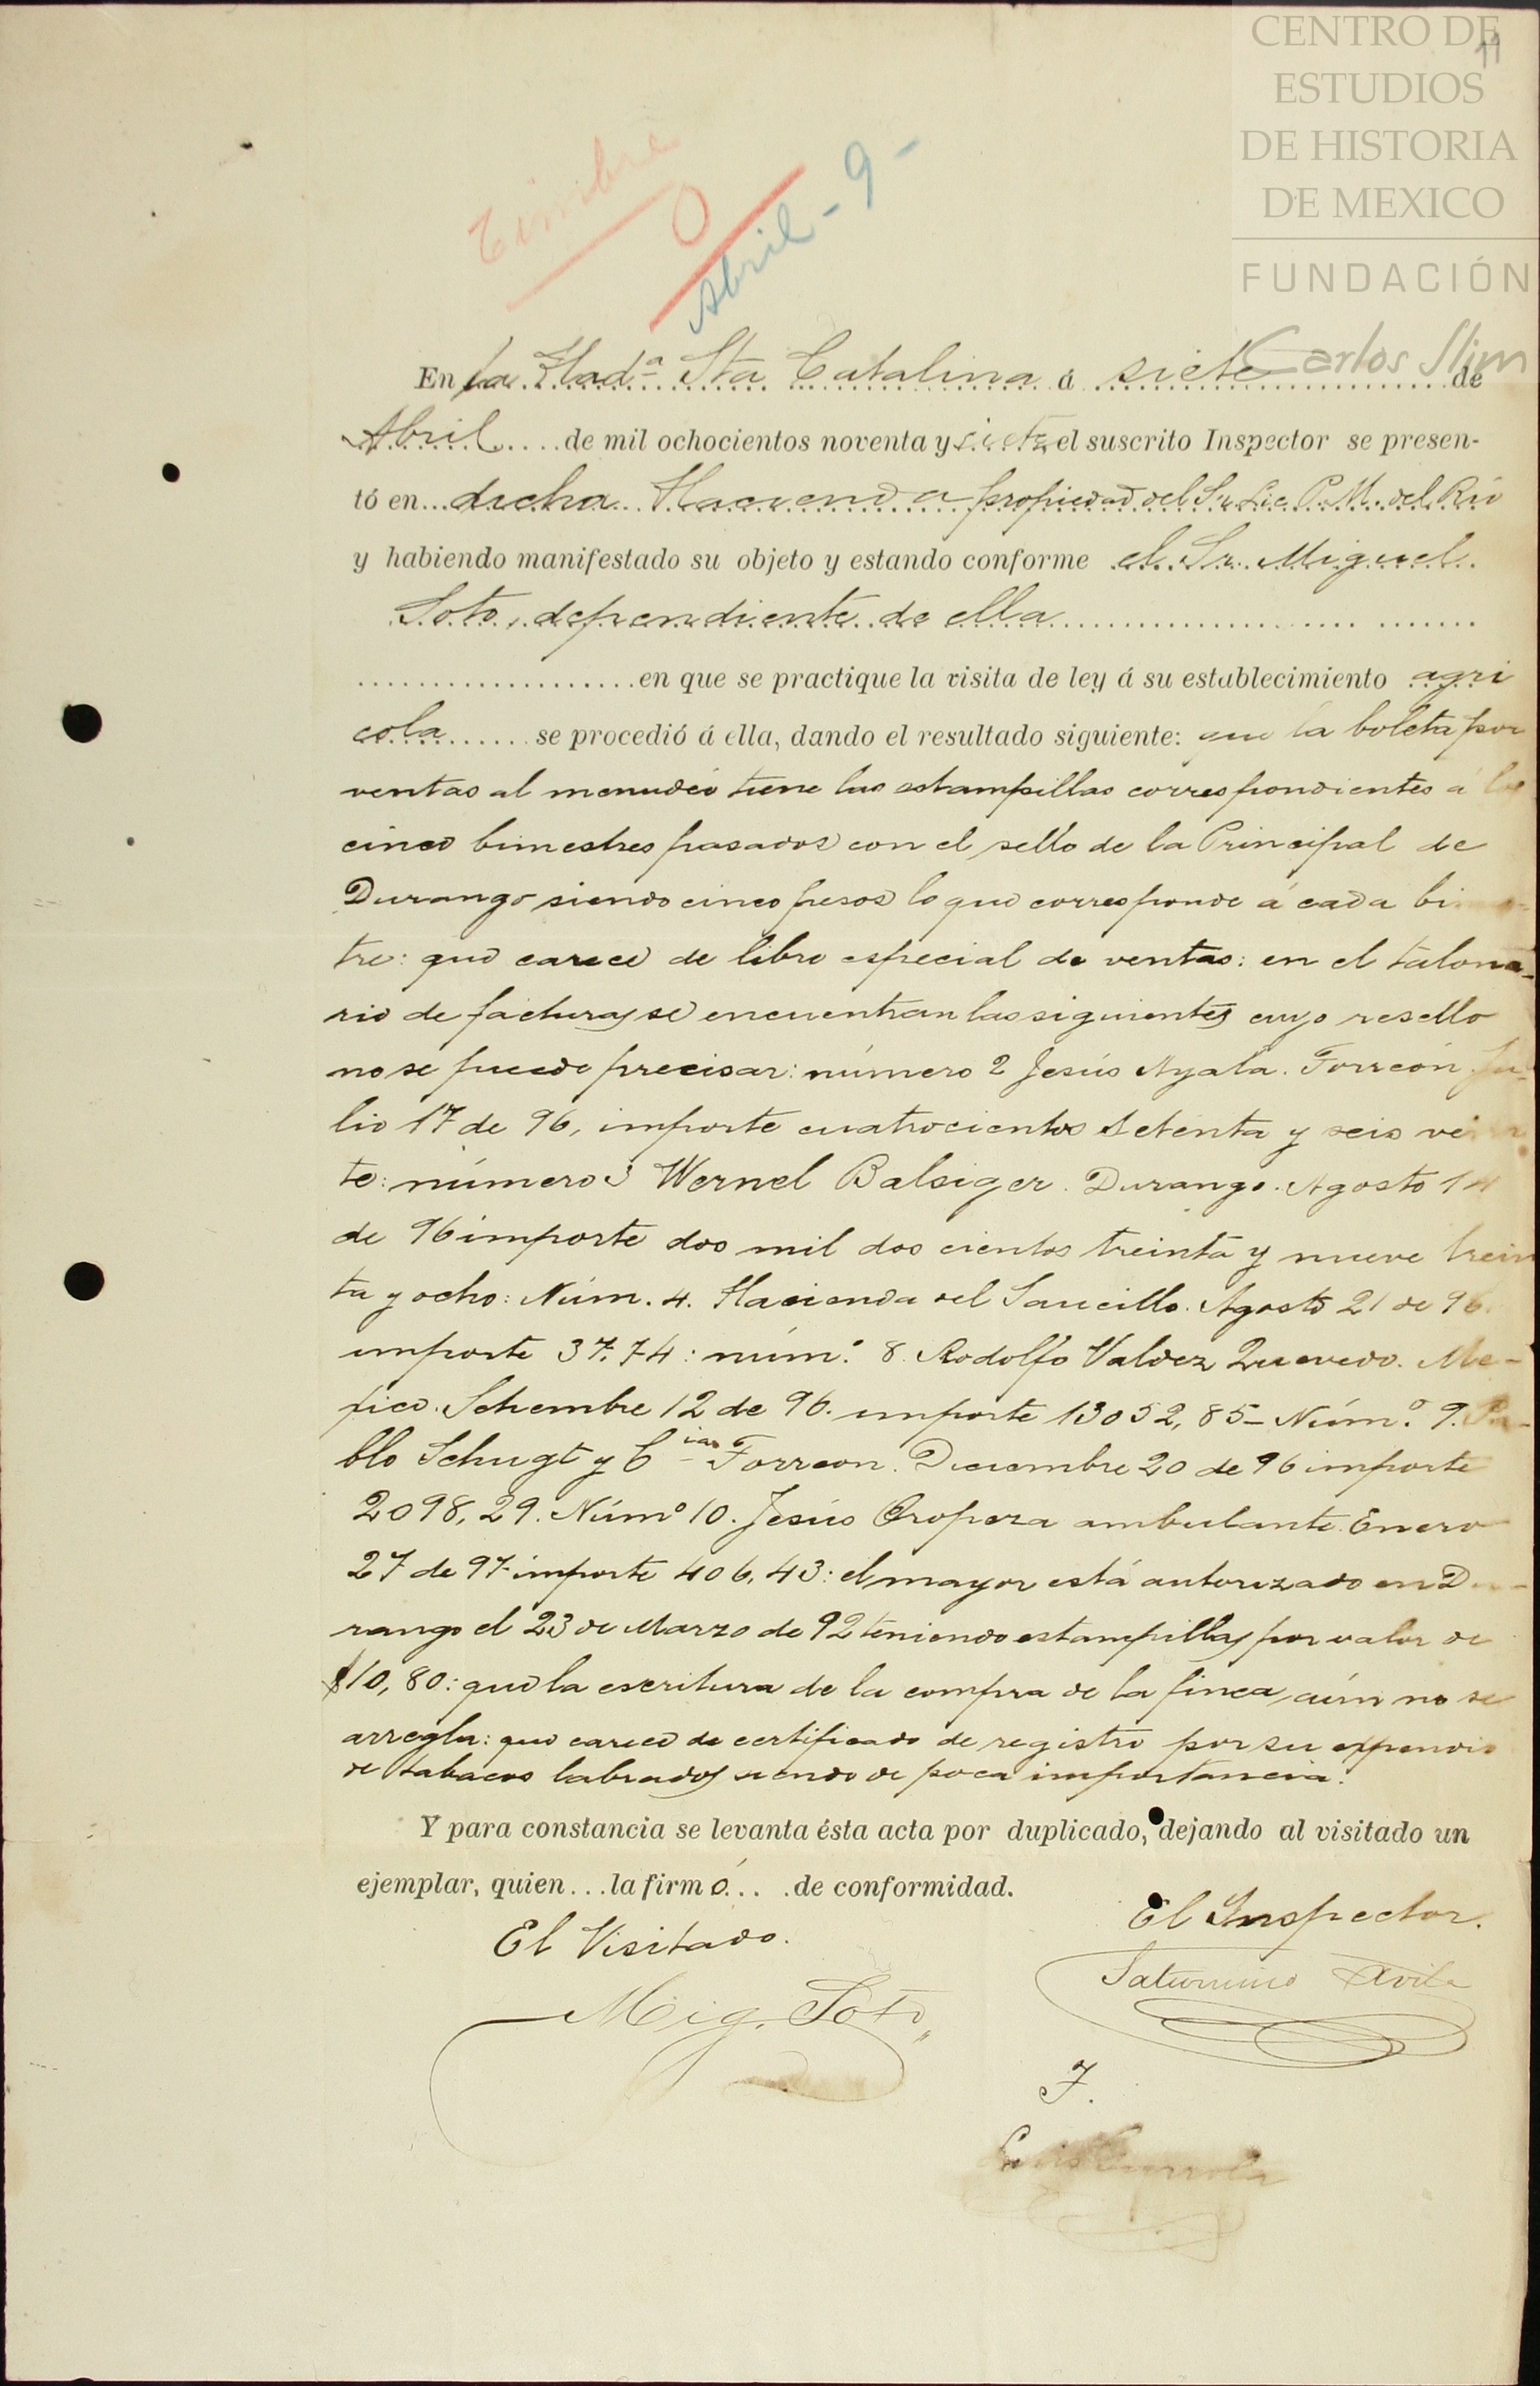 CENTRO DE
ESTUDIOS
DE HISTORIA
DE MEXICO
FUNDACIÓN
Carlos Slim
11
Timbre
0
Abril - 9 -
En la Hadª Sta Catalina á siete de
Abril de mil ochocientos noventa y siete el suscrito Inspector se presen-
tó en dicha Hacienda propiedad del Sr. Lic. P. M. del Río
y habiendo manifestado su objeto y estando conforme el Sr. Miguel
Soto, dependiente de ella
en que se practique la visita de ley á su establecimiento agrí
cola se procedió á ella, dando el resultado siguiente: que la boleta por
ventas al menudeo tiene las estampillas correspondientes á los
cinco bimestres pasados con el sello de la Principal de
Durango siendo cinco pesos lo que corresponde á cada bimes-
tre: que carece de libro especial de ventas: en el talona-
rio de facturas se encuentran las siguientes cuyo resello
no se puede precisar: número 2 Jesús Ayala. Torreón Ju-
lio 17 de 96, importe cuatrocientos setenta y seis vein
te: número 3 Wernel Balsiger. Durango. Agosto 14
de 96 importe dos mil dos cientos treinta y nueve trein
ta y ocho: Núm. 4. Hacienda del Saucillo. Agosto 21 de 96.
importe 37.74: núm.º 8. Rodolfo Valdez Quevedo. Me-
jico. Setiembre 12 de 96. importe 13052,85- Núm.º 9. Pa-
blo Schugt y Cías Torreon. Diciembre 20 de 96 importe
2098,29. Númº 10. Jesús Oropeza ambulante. Enero
27 de 97 importe 406,43: el mayor está autorizado en Du-
rango el 23 de Marzo de 92 teniendo estampillas por valor de
$10,80: que la escritura de la compra de la finca, aún no se
arregla: que carece de certificado de registro por su expendio
de tabacos labrados siendo de poca importancia.
Y para constancia se levanta ésta acta por duplicado, dejando al visitado un
ejemplar, quien la firmó de conformidad.
El Inspector.
El Visitado.
Saturnino Avila
Mig. Soto
F.